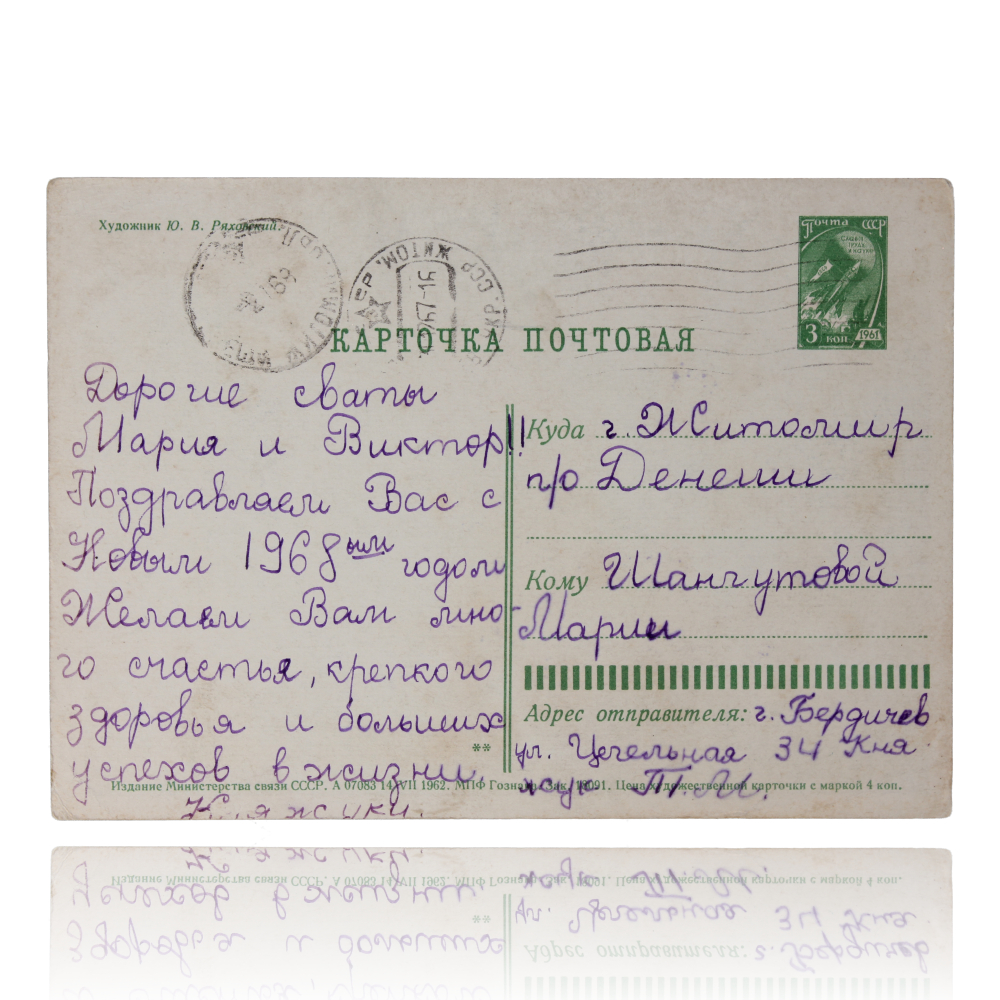 Художник Ю. В. Ряховский.
Почта СССР
3 коп
1961
УКР. ССР. ЖИТОМ.
КАРТОЧКА ПОЧТОВАЯ
Дорогие сваты
Мария и Виктор!!
Поздравляем Вас с
Новым 1968ым годом
Желаем Вам мно-
го счастья, крепкого
здоровья и больших
успехов в жизни.
Княжуки.
Куда г. Житомир
п/о Денеши
Кому Шангутовой
Марии
Адрес отправителя: г. Бердичев
ул. Цегельная 34 Кня
жук П. М.
**
Издание Министерства связи СССР. А 07083 14/VII 1962. МПФ Гознака. Зак. 11091. Цена художественной карточки с маркой 4 коп.